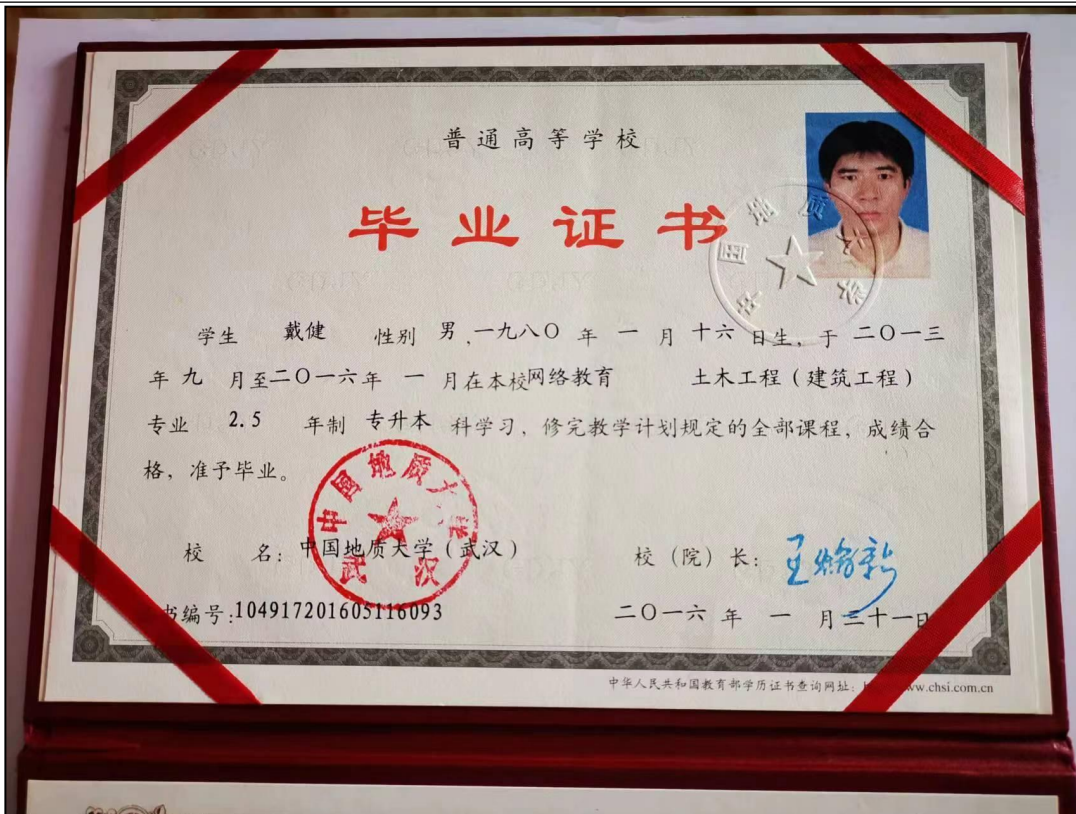 普通高等学校
毕业证书
学生 戴健 性别 男,一九八〇 年 一 月 十六 日生,于 二〇一三
年 九 月至二〇一六年 一 月在本校网络教育 土木工程(建筑工程)
专业 2.5 年制 专升本 科学习,修完教学计划规定的全部课程,成绩合
格,准予毕业。
中国地质大学
武汉
校 名:中国地质大学(武汉) 校(院)长:王焰新
书编号:104917201605116093 二〇一六 年 一 月三十一日
中华人民共和国教育部学历证书查询网址: ww.chsi.com.cn
中国地质大学